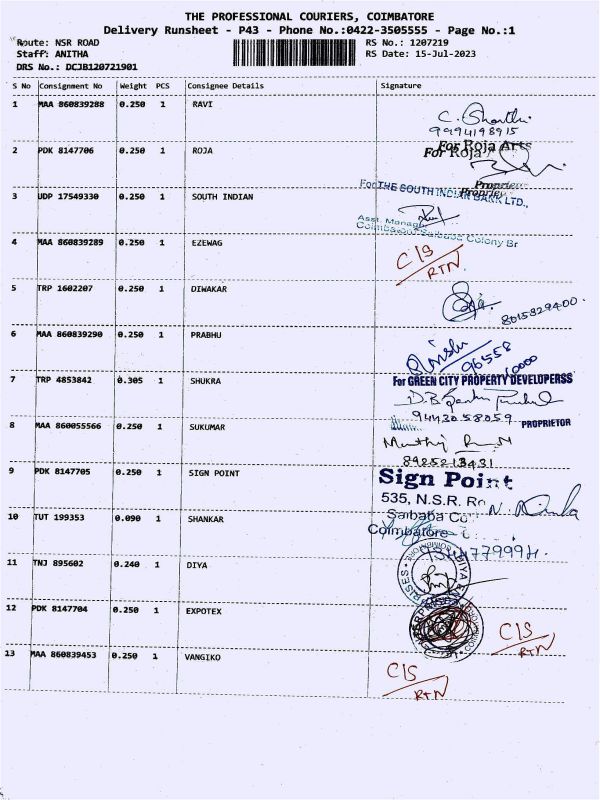 THE PROFESSIONAL COURIERS, COIMBATORE
Delivery Runsheet - P43 - Phone No.:0422-3505555 - Page No.:1
Route: NSR ROAD RS No.: 1207219
Staff: ANITHA RS Date: 15-Jul-2023
DRS No.: DCJB120721901
S No Consignment No Weight PCS Consignee Details Signature
1 MAA 860839288 0.250 1 RAVI
C. Shanthi
9994198915
2 PDK 8147706 0.250 1 ROJA
For Roja Arts
For Roja
Proprie
Proprie
3 UDP 17549330 0.250 1 SOUTH INDIAN
For THE SOUTH INDIAN BANK LTD.,
Asst. Manager
Coimbatore Saibaba Colony Br
4 MAA 860839289 0.250 1 EZEWAG
C/S
RTN
5 TRP 1602207 0.250 1 DIWAKAR
8015829400
6 MAA 860839290 0.250 1 PRABHU
96558
10000
7 TRP 4853842 0.305 1 SHUKRA
For GREEN CITY PROPERTY DEVELOPERSS
9443058059
PROPRIETOR
8 MAA 860055566 0.250 1 SUKUMAR
8925213431
9 PDK 8147705 0.250 1 SIGN POINT
Sign Point
535, N.S.R. Ro
Saibaba Co
Coimbatore
10 TUT 199353 0.090 1 SHANKAR
11 TNJ 895602 0.240 1 DIYA
12 PDK 8147704 0.250 1 EXPOTEX
C/S
RTN
13 MAA 860839453 0.250 1 VANGIKO
C/S
RTN